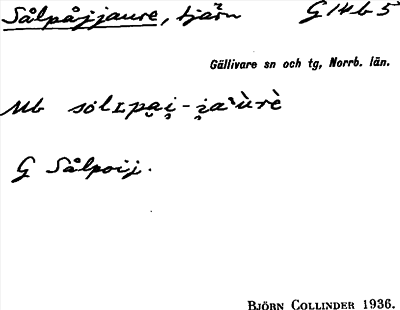 Sålpåjjaure, tjärn G14b5
Gällivare sn och tg, Norrb. län.
Mb
G Sålpoij.
BJÖRN COLLINDER 1936.